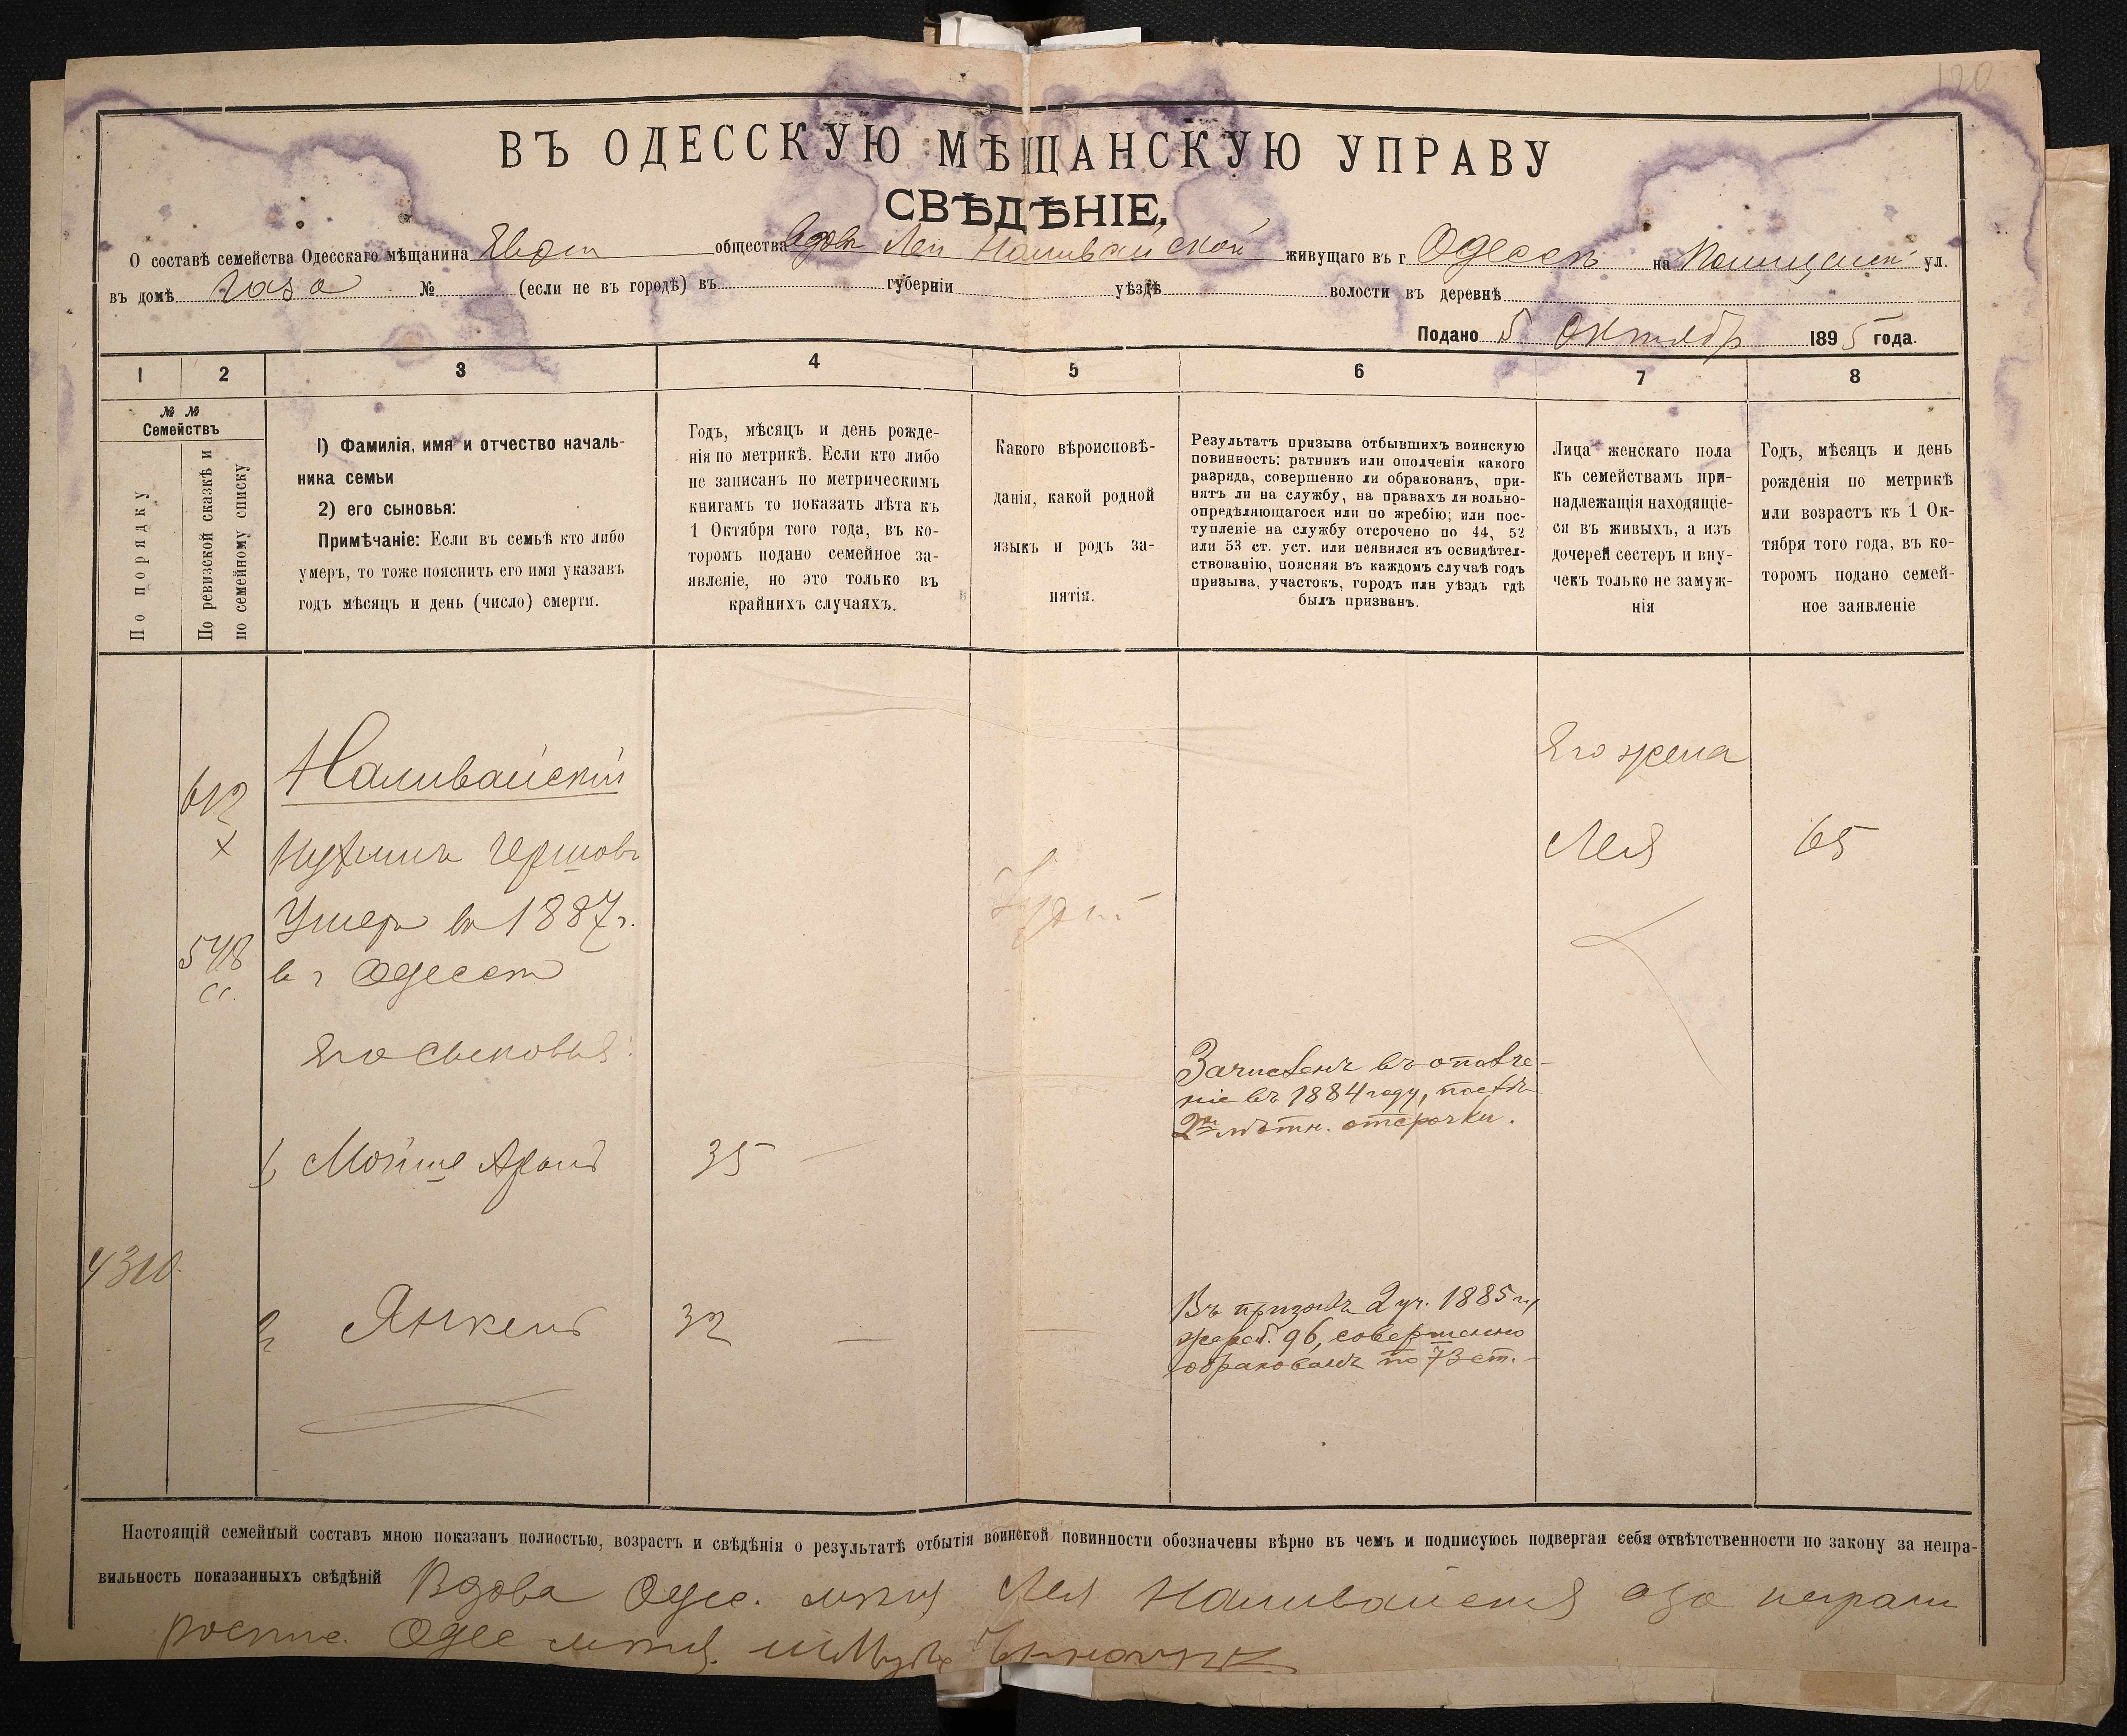 120
ВЪ ОДЕССКУЮ МѢЩАНСКУЮ УПРАВУ
СВѢДѢНІЕ.
О составѣ семейства Одесскаго мѣщанина общества Леи Наливайской живущаго въ г. Одессѣ на ул.
въ домѣ № (если не въ городѣ) въ губерніи уѣздѣ волости въ деревнѣ
Подано 5 Октябр 1895 года.
1 2 3 4 5 6 7 8
№ № Семействъ
По порядку
По ревизской сказкѣ и по семейному списку
1) Фамилія, имя и отчество началь-
ника семьи
2) его сыновья:
Примѣчаніе: Если въ семьѣ кто либо
умеръ, то тоже пояснить его имя указавъ
годъ мѣсяцъ и день (число) смерти.
Годъ, мѣсяцъ и день рожде-
нія по метрикѣ. Если кто либо
не записанъ по метрическимъ
книгамъ то показать лѣта къ
1 Октября того года, въ ко-
торомъ подано семейное за-
явленіе, но это только въ
крайнихъ случаяхъ.
Какого вѣроисповѣ-
данія, какой родной
языкъ и родъ за-
нятія.
Результатъ призыва отбывшихъ воинскую
повинность: ратникъ или ополченія какого
разряда, совершенно ли обракованъ, при-
нятъ ли на службу, на правахъ ли вольно-
опредѣляющагося или по жребію; или пос-
тупленіе на службу отсрочено по 44, 52
или 53 ст. уст. или неявился къ освидѣтел-
ствованію, поясняя въ каждомъ случаѣ годъ
призыва, участокъ, городъ или уѣздъ гдѣ
былъ призванъ.
Лица женскаго пола
къ семействамъ при-
надлежащія находящіе-
ся въ живыхъ, а изъ
дочерей сестеръ и вну-
чекъ только не замуж-
нія
Годъ, мѣсяцъ и день
рожденія по метрикѣ
или возрастъ къ 1 Ок-
тября того года, въ ко-
торомъ подано семей-
ное заявленіе
Его жена
612
Наливайскій
Гершовъ
Лея 65
Умеръ в 1887 г.
548
в г Одессѣ
Его сыновья:
Зачисленъ въ ополче-
ніе въ 1884 году, послѣ
2хъ лѣтн. отсрочки.
1) Мойше Аронъ 35 —
4310.
2 Янкель 32 — —
Въ призывъ 2 уч. 1885 г,
жереб. 96, совершенно
обракованъ по 73 ст. -
Настоящій семейный составъ мною показанъ полностью, возрастъ и свѣдѣнія о результатѣ отбытія воинской повинности обозначены вѣрно въ чемъ и подписуюсь подвергая себя отвѣтственности по закону за непра-
вильность показанныхъ свѣдѣній Вдова Одес. Лея Наливайская
Одес